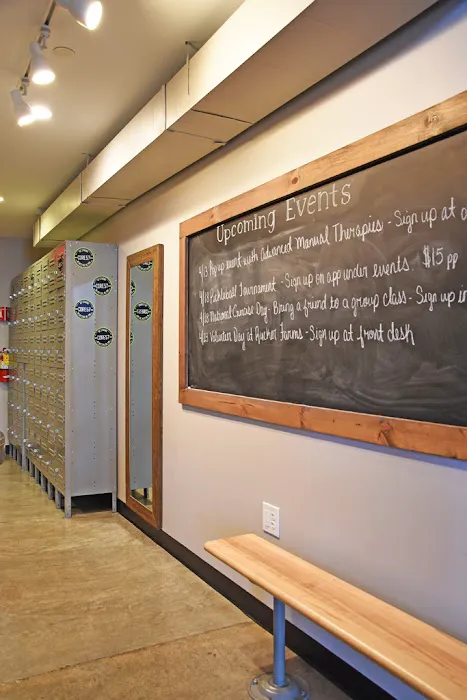 Upcoming Events
Pop up event with Advanced Manual Therapies - Sign up at
Pickleball Tournament - Sign up on app under events. $15 pp
National Cousins Day - Bring a friend to a group class - Sign up
Volunteer Day at Rucker Farms - Sign up at front desk